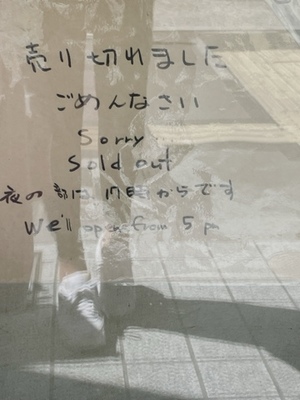 売り切れました
ごめんなさい
Sorry
Sold out
夜の部は 17時からです
We'll open from 5 pm